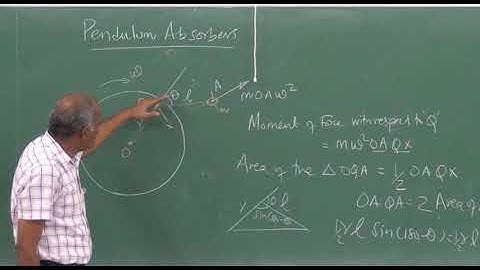 Pendulum Absorbers
ω
θ l A
m
mOAω²
O
Moment of Force with respect to 'Q'
= mω² OA QX
Area of the △OQA = 1/2 OA QX
OA QA = 2 Area of
r θ l
sin(180-θ)
1/2 r l sin(180-θ) = 1/2 r l